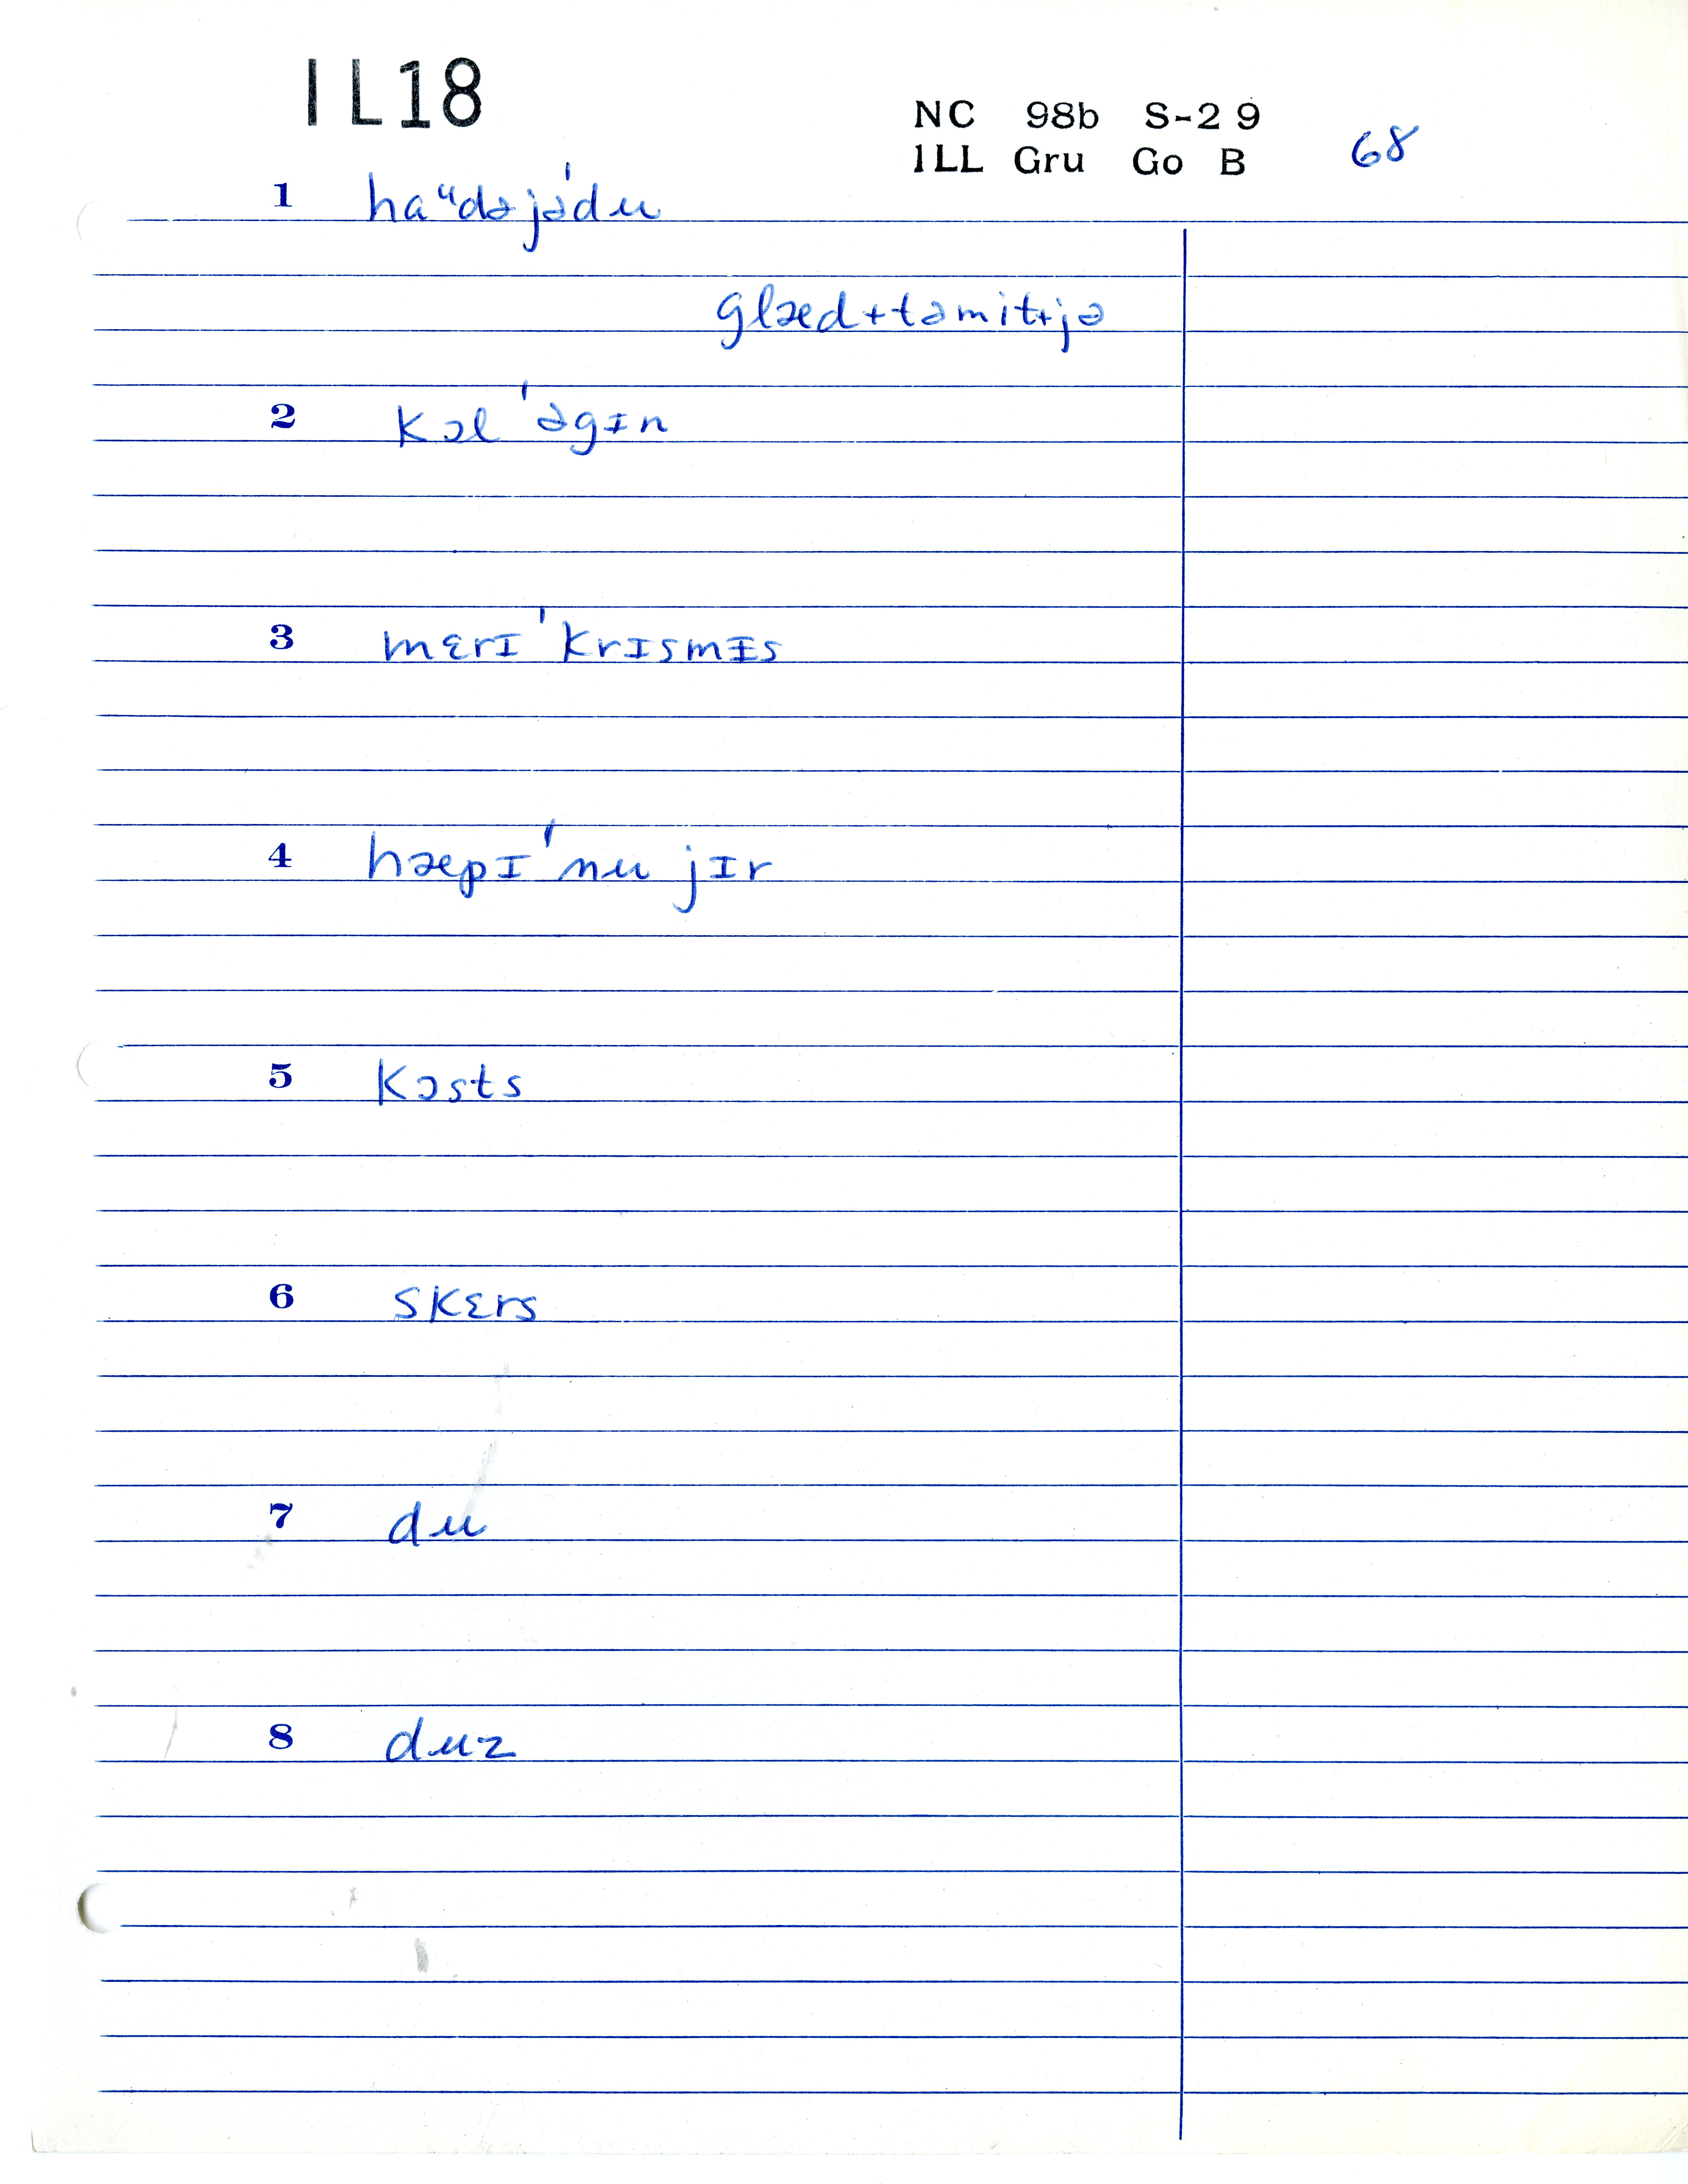 IL18
NC 98b S-29
ILL Gru Go B 68
1 haᵘdəjə'du
glæd+təmit+jə
2 kɔl 'əgɪn
3 mɛrɪ 'krɪsmɨs
4 hæpɪ 'nu jɪr
5 kɔsts
6 skɛrs
7 du
8 duz